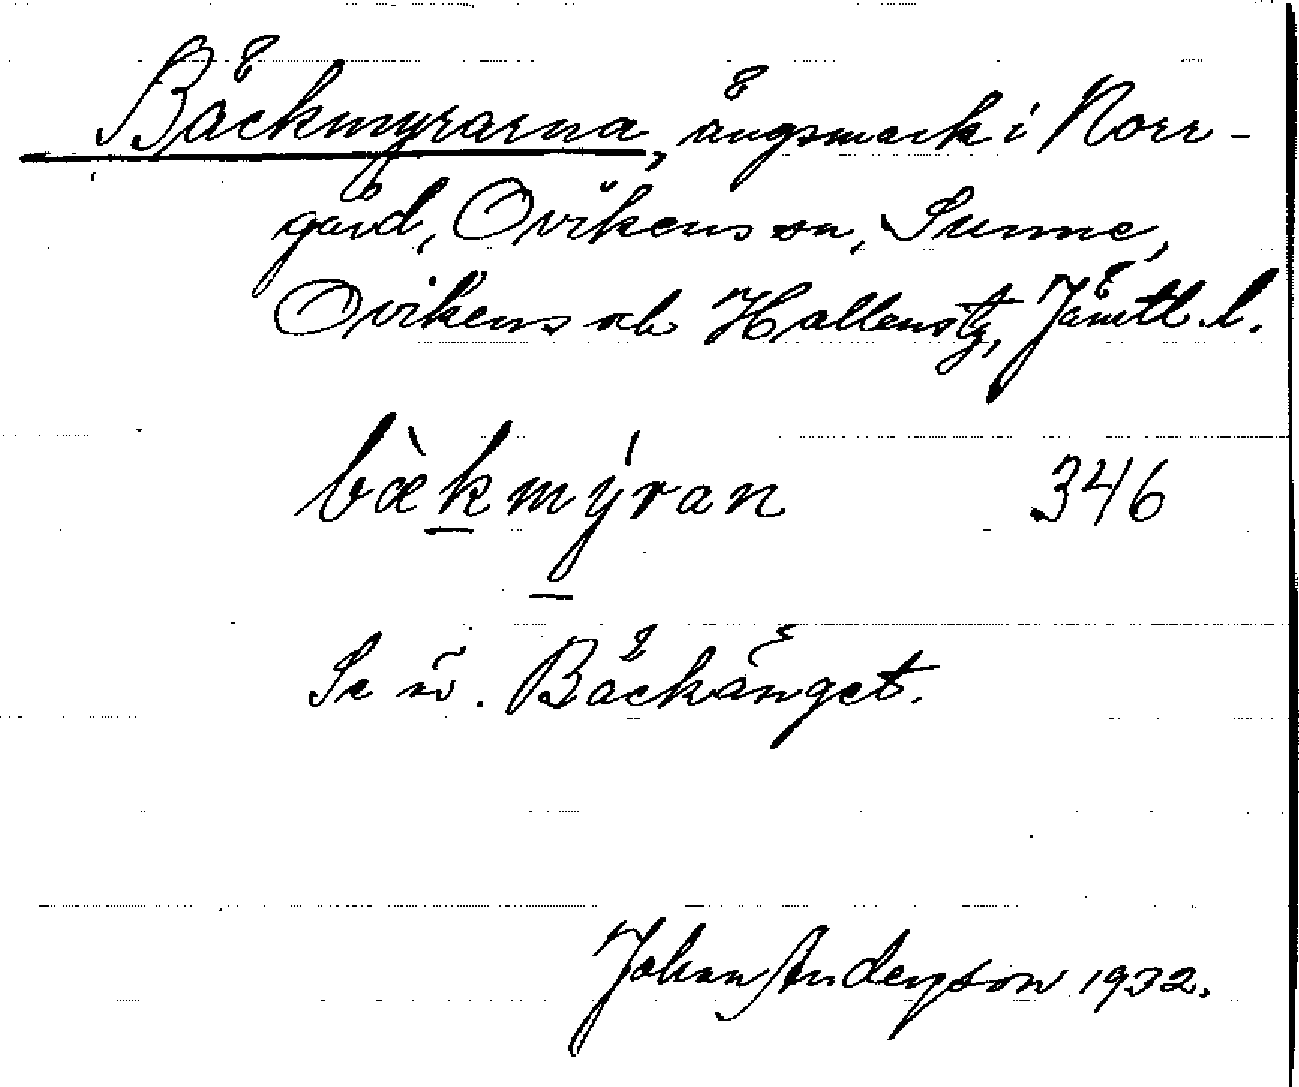 Bäckmyrarna, ängsmark i Norr-
gård, Ovikens sn, Sunne,
Ovikens och Hallens tg, Jämtl. l.
bæ̀kmýran 346
Se nr. Bäckänget.
Johan Anderson 1932.